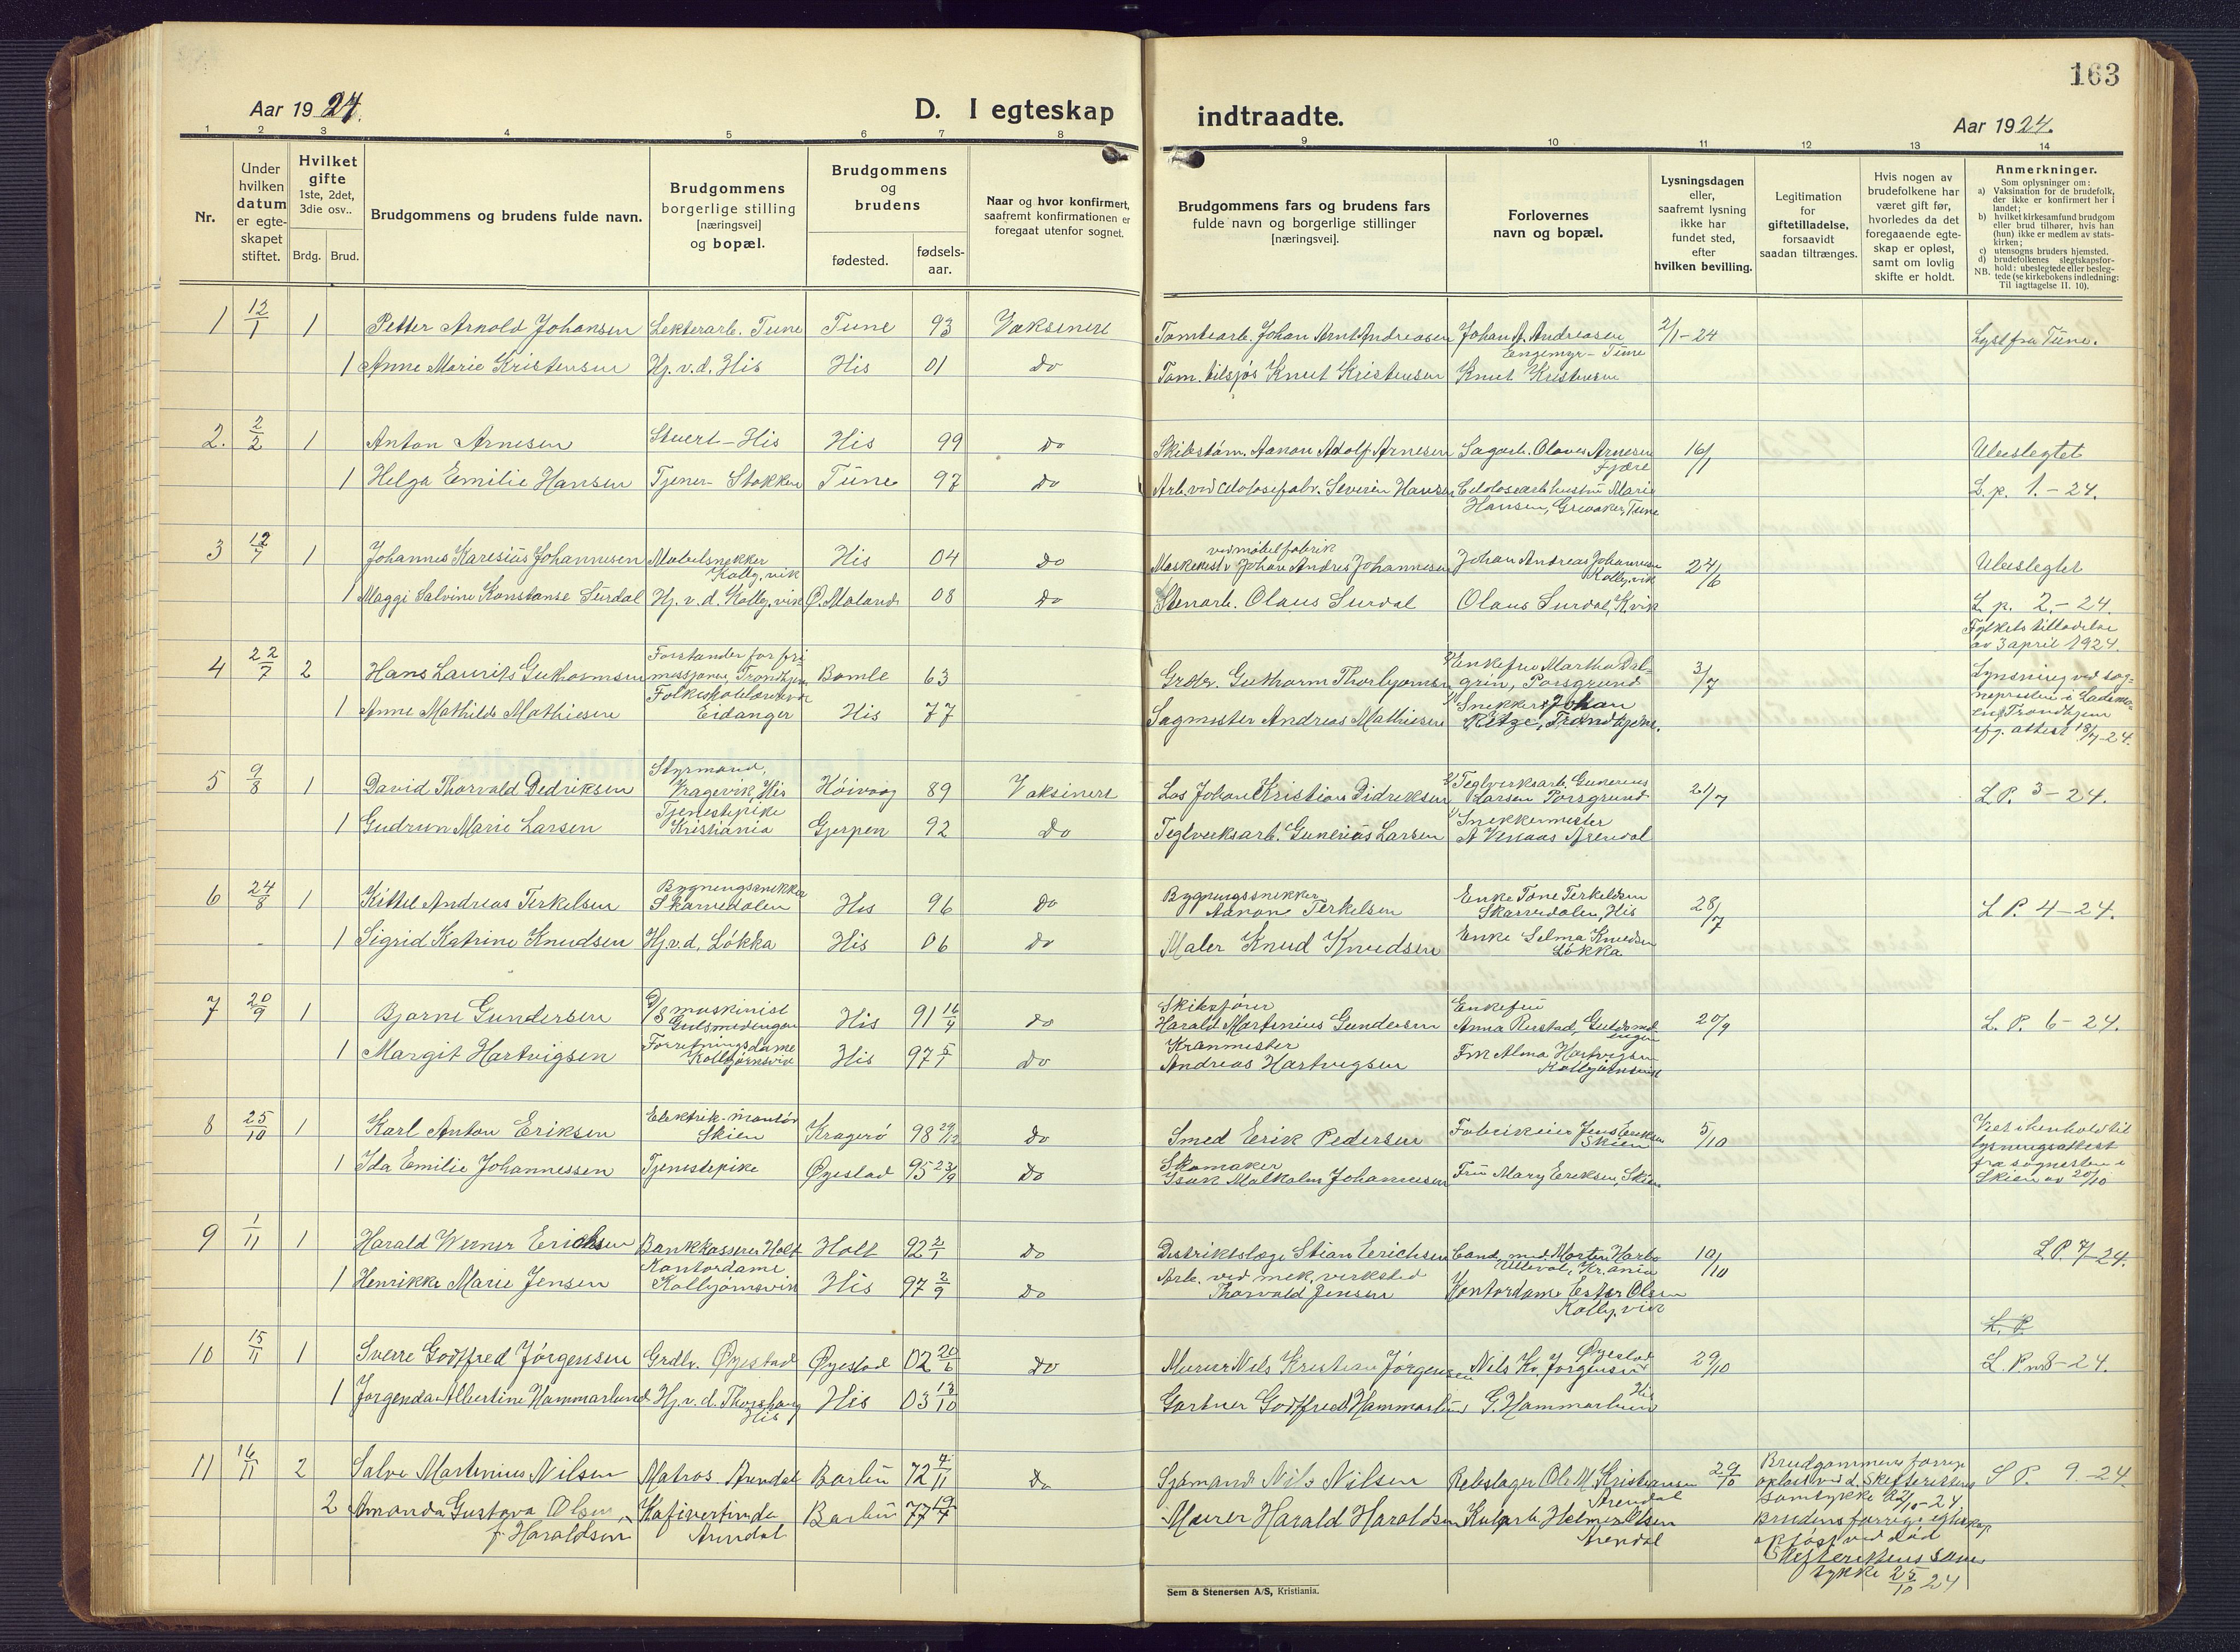 163
Aar 1924.
D. I egteskap
indtraadte.
Aar 1924.
1 2 3 4 5 6 7 8 9 10 11 12 13 14
Nr.
Under hvilken datum er egte-skapet stiftet.
Hvilket gifte
1ste, 2det, 3die osv..
Brdg. Brud.
Brudgommens og brudens fulde navn.
Brudgommens borgerlige stilling [næringsvei] og bopæl.
Brudgommens og brudens
fødested.
fødsels-aar.
Naar og hvor konfirmert, saafremt konfirmationen er foregaat utenfor sognet.
Brudgommens fars og brudens fars fulde navn og borgerlige stillinger [næringsvei].
Forlovernes navn og bopæl.
Lysningsdagen eller, saafremt lysning ikke har fundet sted, efter hvilken bevilling.
Legitimation for giftetilladelse, forsaavidt saadan tiltrænges.
Hvis nogen av brudefolkene har været gift før, hvorledes da det foregaaende egte-skap er opløst, samt om lovlig skifte er holdt.
Anmerkninger.
Som oplysninger om:
a) Vaksination for de brudefolk, der ikke er konfirmert her i landet;
b) hvilket kirkesamfund brudgom eller brud tilhører, hvis han (hun) ikke er medlem av stats-kirken;
c) utensogns bruders hjemsted.
d) brudefolkenes slegtskapsfor-hold: ubeslegtede eller besleg-tede (se kirkebokens indledning:
NB. Til iagttagelse II. 10).
1 12/1 1 Petter Arnold Johansen Tune Tune 93 Vaksinert Tomtearb. Johan Arnt Andreasen Johan A. Andreasen Engemyr - Tune 2/1-24 Lyst fra Tune.
1 Anne Marie Kristensen Hj. v. d. His His 01 do Tøm. tilsjøs Knut Kristensen Knut Kristensen
2. 2/2 1 Anton Arnesen Stuert - His His 99 do Skibstøm. Aanon Adolf Arnesen Sagarb. Olaves Arnesen Fjære 16/1 Ubeslegtet
1 Helga Emilie Hansen Tjener - Stokken Tune 97 do Arb. ved Severin Hansen Marie Hansen, Greaaker, Tune L. p. 1. - 24.
3 12/7 1 Johannes Karesius Johannesen Møbelsnekker Kolbj.vik His 04 do ved møbelfabrik Johan Andreas Johannesen Johan Andreas Johannesen Kolbj.vik 24/6 Ubeslegtet
1 Maggi Salvine Konstanse Surdal Hj. v. d. Kolbj.vik Ø. Moland 08 do Stenarb. Olaus Surdal Olaus Surdal, K.vik L. p. 2. - 24.
4 22/7 2 Hans Laurits Guthormsen Forstander for fri missjonen, Trondhjem Bamle 63 Grdbr. Guthorm Thorbjørnsen Enkefru Martha Dal-grin, Porsgrund 3/7 Fylkets tilladelse av 3 april 1924. Lysning ved sog-
1 Anne Mathilde Mathiesen Folkeskolelærerinde Eidanger His 77 Sagmester Andreas Mathiesen Snekker Johan Trondhjem. nepresten i Lademo-en, Trondhjem ifg. attest 18/7-24.
5 9/8 1 David Thorvald Dedriksen Styrmand, Kragevik, His Høivaag 89 Vaksinert Los Johan Kristian Didriksen Teglverksarb. Gunerius Larsen Porsgrund 21/7 L.P. 3 - 24.
1 Gudrun Marie Larsen Tjenestepike Kristiania Gjerpen 92 do Teglverksarb. Gunerius Larsen Snekkermester Arendal
6 24/8 1 Kittel Andreas Terkelsen Bygningssnekker Skarvedalen His 96 do Bygningssnekker Aanon Terkelsen Enke Tone Terkelsen Skarvedalen, His 28/7 L P. 4 - 24.
1 Sigrid Katrine Knudsen Hj. v. d. Løkka His 06 do Maler Knud Knudsen Enke Selma Knudsen Løkka
7 20/9 1 Bjarne Gundersen D/S maskinist Gulsmedengen His 91 16/4 do Skibsfører Harald Martinius Gundersen Enkefru Anna Gulsmed engen 20/9 L. P. 6 - 24.
1 Margit Hartvigsen Forretningsdame Kolbjørnsvik His 97 5/1 do Kranmester Andreas Hartvigsen Fru Alma Hartvigsen Kolbjørnsvik
8 25/10 1 Karl Anton Eriksen Elektrik. Montør Skien Kragerø 98 29/12 do Smed Erik Pedersen Jens Eriksen Skien 5/10 Viet i henhold til
1 Ida Emilie Johannessen Tjenestepike Øyestad 95 23/9 do Skomaker Isak Malkolm Johannesen Fru Mary Eriksen, Skien lysningsattest fra sognepresten i Skien av 20/10
9 1/11 1 Harald Werner Erichsen Bankkasserer Holt Holt 92 2/1 do Distriktslæge Stian Erichsen Cand. med. Morten Harbo Ullevål, Kr.ania 10/10 L.P. 7/-24.
1 Henrikke Marie Jensen Kontordame Kolbjørnsvik His 97 2/9 do Arb. ved mek. verksted Thorvald Jensen Kontordame Ester Olsen Kolbj.vik
L. P.
10 15/11 1 Sverre Godtfred Jørgensen Grdbr. Øyestad Øyestad 02 20/6 do Murer Nils Kristian Jørgensen Nils Kr. Jørgensen Øyestad 29/10 L. P. nr 8 - 24.
1 Jorgenda Albertine Hammarlund Hj. v. d. Thorshaug His His 03 13/10 Gartner Godtfred Hammarlund G. Hammarlund His
11 16/11 2 Salve Martinius Nilsen Matros Arendal Barbu 72 4/11 do Sjømand Nils Nilsen Rebslager Ole M. Kristiansen Arendal 29/10 Brudgommens forrige opløst ved d. Skifterettens samtykke 22/10-24. L P. 9. - 24
2 Amanda Gustava Olsen f. Haraldsen Kafivertinde Arendal Barbu 77 19/4 Murer Harald Haraldsen Kularb. Helmer Olsen Arendal Brudens forrige egteskap opløst ved død Skifterettens samtykke 25/10 24
Sem & Stenersen A/S, Kristiania.